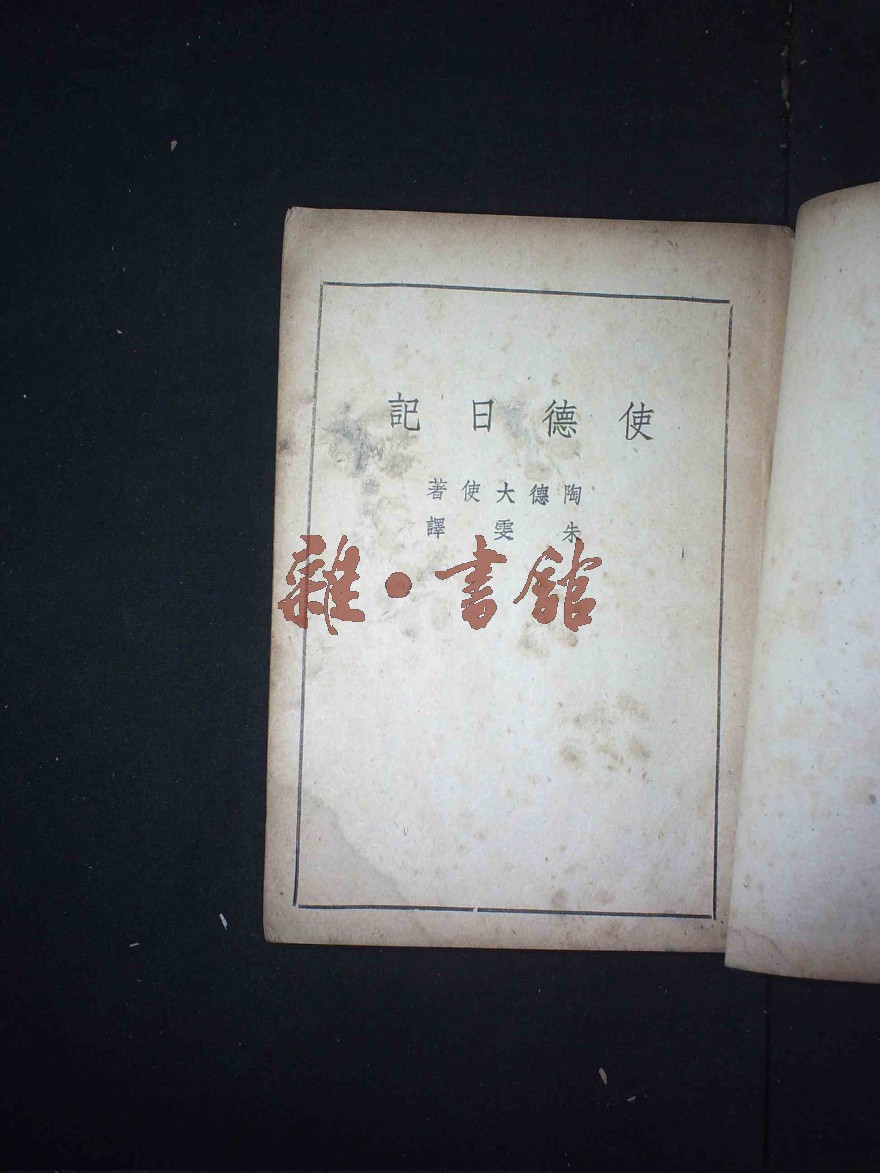 使德日記
陶德大使著
朱雯譯
雜·書館